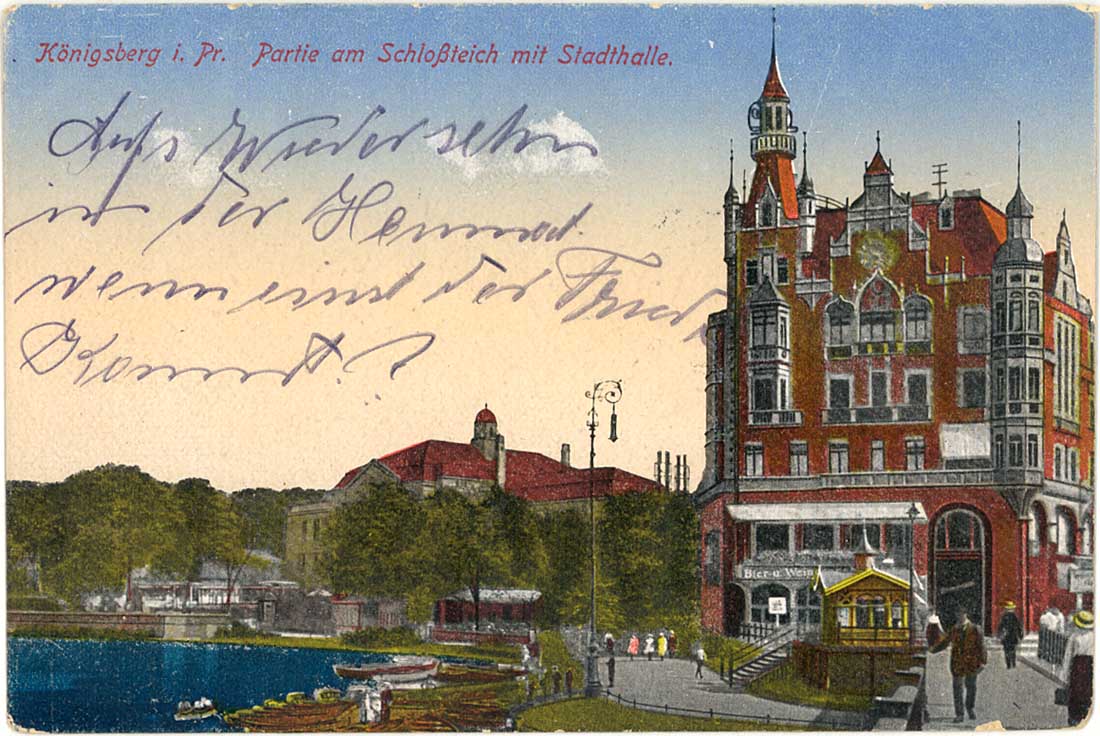 Königsberg i. Pr. Partie am Schloßteich mit Stadthalle.
Aufs Wiedersehn
in der Heimat
wenn einst der Friede
Kommt.
Bier- u. Wein